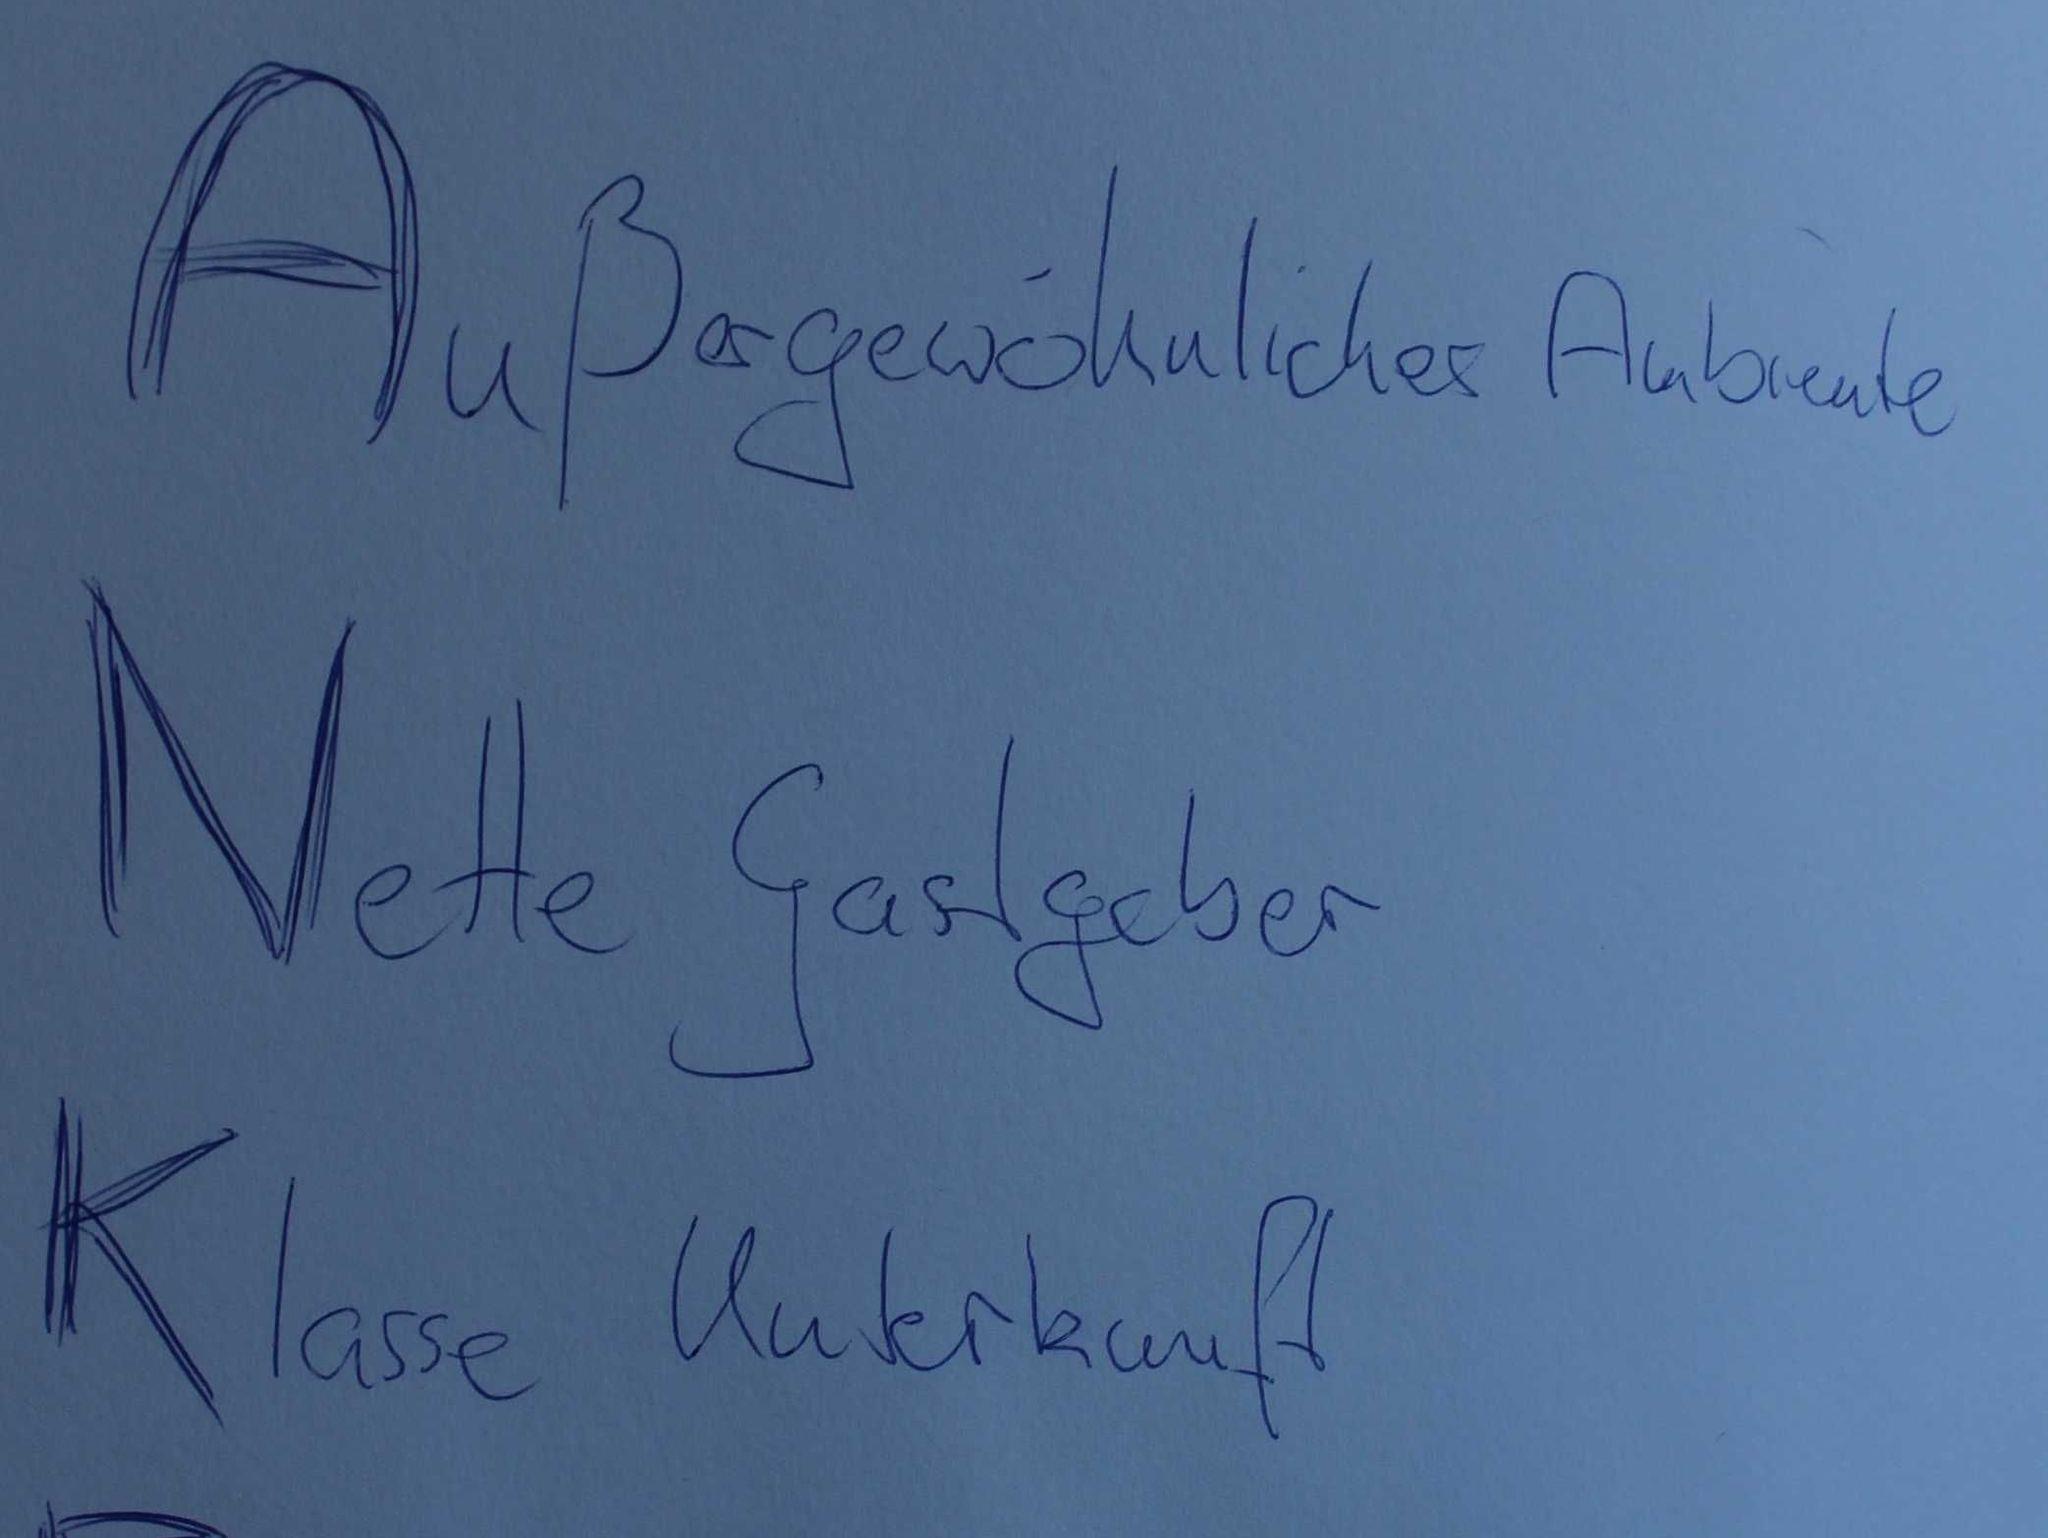 Außergewöhnliches Ambiente
Nette Gastgeber
Klasse Unterkunft